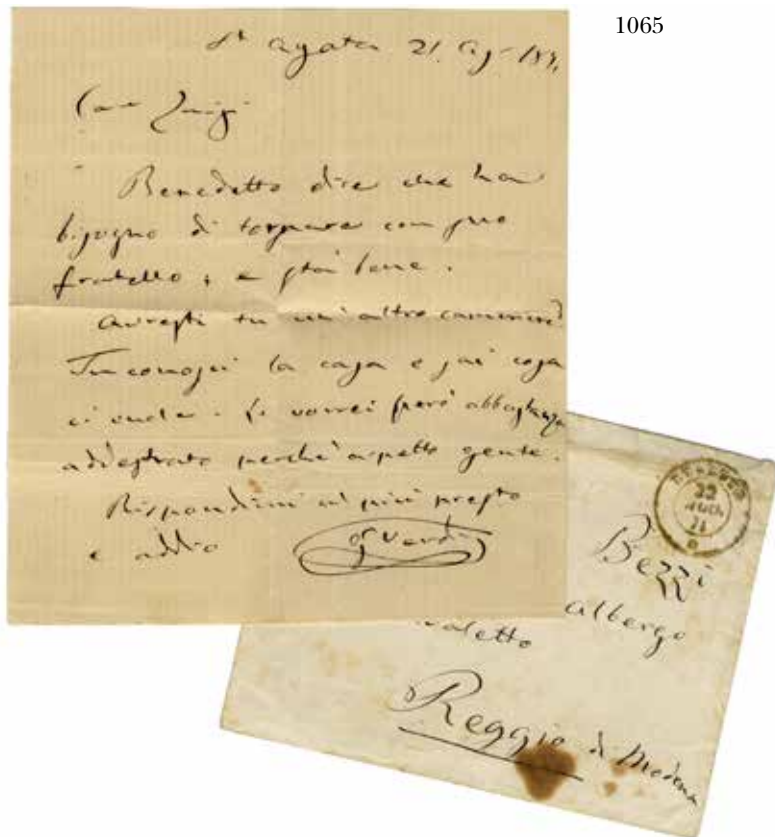 1065
St Agata 21. Ag. 1871
Caro Luigi
Benedetto dice che ha
bisogno di tornare con suo
fratello, e stai bene.
Avresti tu un altro cameriere?
Tu conosci la casa e sai cosa
ci vuole. Lo vorrei però abbastanza
addestrato perché aspetto gente.
Rispondimi al più presto
e addio
G Verdi
22
71
Bezzi
albergo
Reggio di Modena